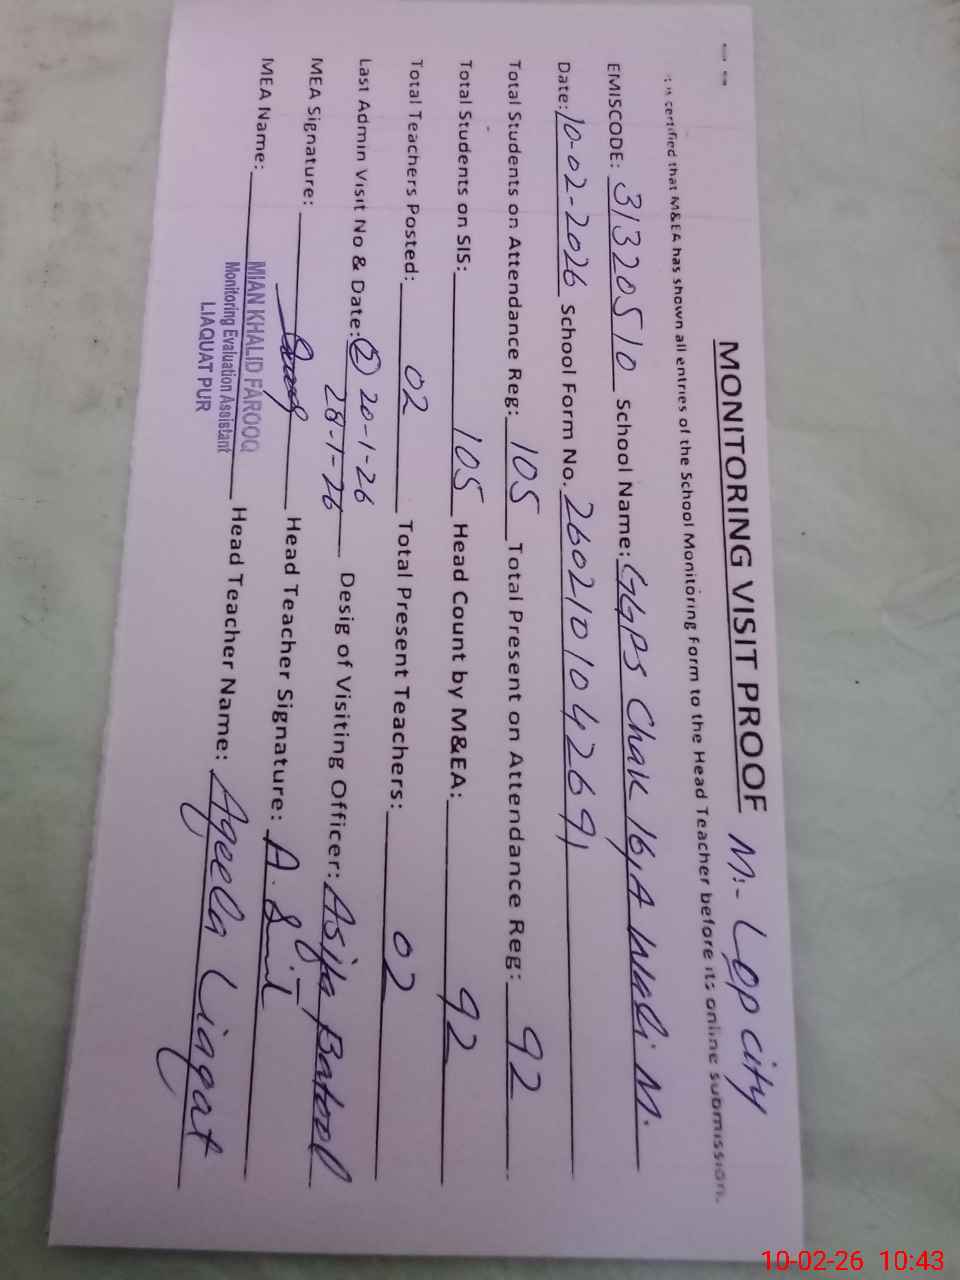 MONITORING VISIT PROOF M:- Lop city
It is certified that M&EA has shown all entries of the School Monitoring Form to the Head Teacher before its online submission.
EMISCODE: 31320510 School Name: GGPS Chak 16/A Wali M.
Date: 10-02-2026 School Form No. 260210104269
Total Students on Attendance Reg: 105 Total Present on Attendance Reg: 92
Total Students on SIS: 105 Head Count by M&EA: 92
Total Teachers Posted: 02 Total Present Teachers: 02
Last Admin Visit No & Date: 2 20-1-26 Desig of Visiting Officer: Asifa Batool
28-1-26
MEA Signature: Head Teacher Signature:
MEA Name: MIAN KHALID FAROOQ Head Teacher Name: Aqeela Liaqat
Monitoring Evaluation Assistant
LIAQUAT PUR
10-02-26 10:43